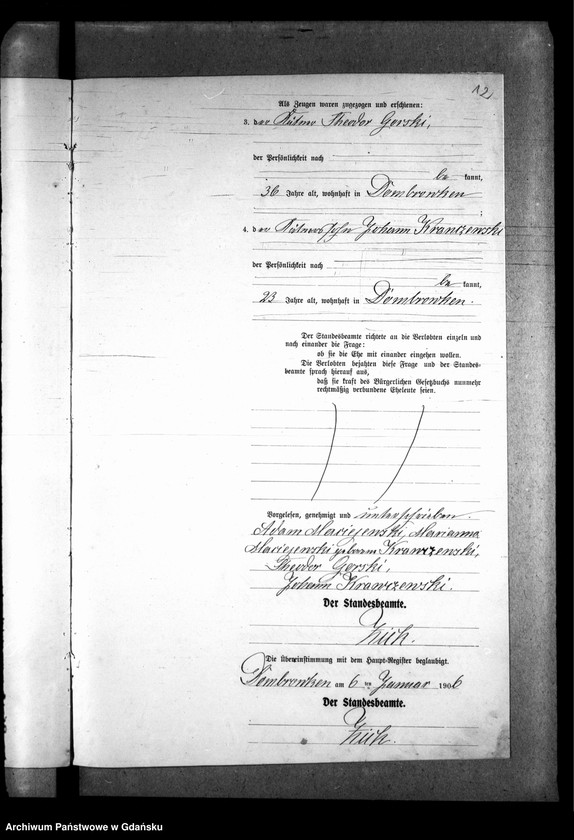 12
Als Zeugen waren zugezogen und erschienen:
3. der Käthner Theodor Gorski,
der Persönlichkeit nach
be kannt,
36 Jahre alt, wohnhaft in Dombrowken
;
4. der Käthnersohn Johann Krawczewski
der Persönlichkeit nach
be kannt,
23 Jahre alt, wohnhaft in Dombrowken.
Der Standesbeamte richtete an die Verlobten einzeln und
nach einander die Frage:
ob sie die Ehe mit einander eingehen wollen.
Die Verlobten bejahten diese Frage und der Standes-
beamte sprach hierauf aus,
daß sie kraft des Bürgerlichen Gesetzbuchs nunmehr
rechtmäßig verbundene Eheleute seien.
Vorgelesen, genehmigt und unterschrieben.
Adam Maciejewski, Marianna
Maciejewski geborene Krawczewski,
Theodor Gorski,
Johann Krawczewski.
Der Standesbeamte.
Die Übereinstimmung mit dem Haupt-Register beglaubigt.
Dombrowken am 6 ten Januar 1906
Der Standesbeamte.
Archiwum Państwowe w Gdańsku